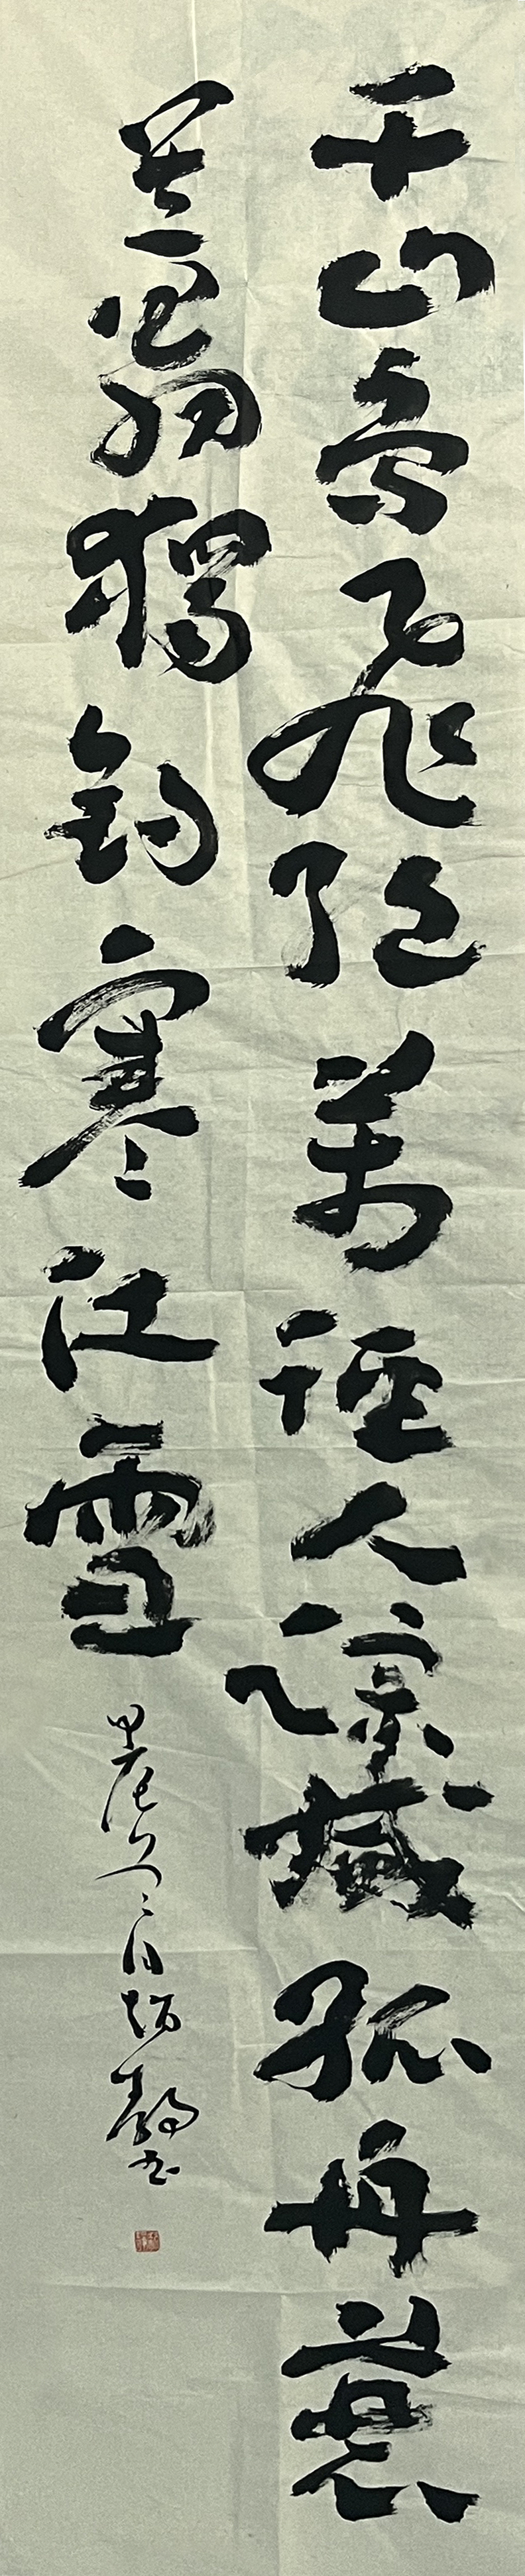 千山鳥飛絕萬徑人蹤滅孤舟蓑
笠翁獨釣寒江雪
甲辰 月 靜书